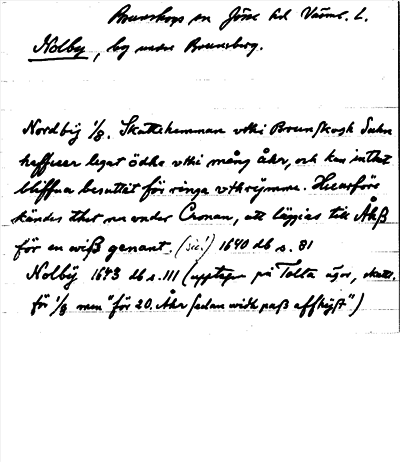 Brunskogs sn Jösse hd Värml. L.
Nolby, by under Brunsberg.
Nordbÿ 1/8. Skattehemman vthi Brunskogh Sochn
haffuer legat ödhe vthi mång åhr, och kan inthet
bliffua besuttet för ringa vthrÿmme. Huarföre
kändes thet nu under Cronan, att läggias till Åkß
för en wiß genant. (sic!) 1640 db s. 81
Nolbÿ 1643 db s. 111 (upptagen på Tolta ägor, skatt.
för 1/8 men "för 20. Åhr sedan widh paß affhÿst")